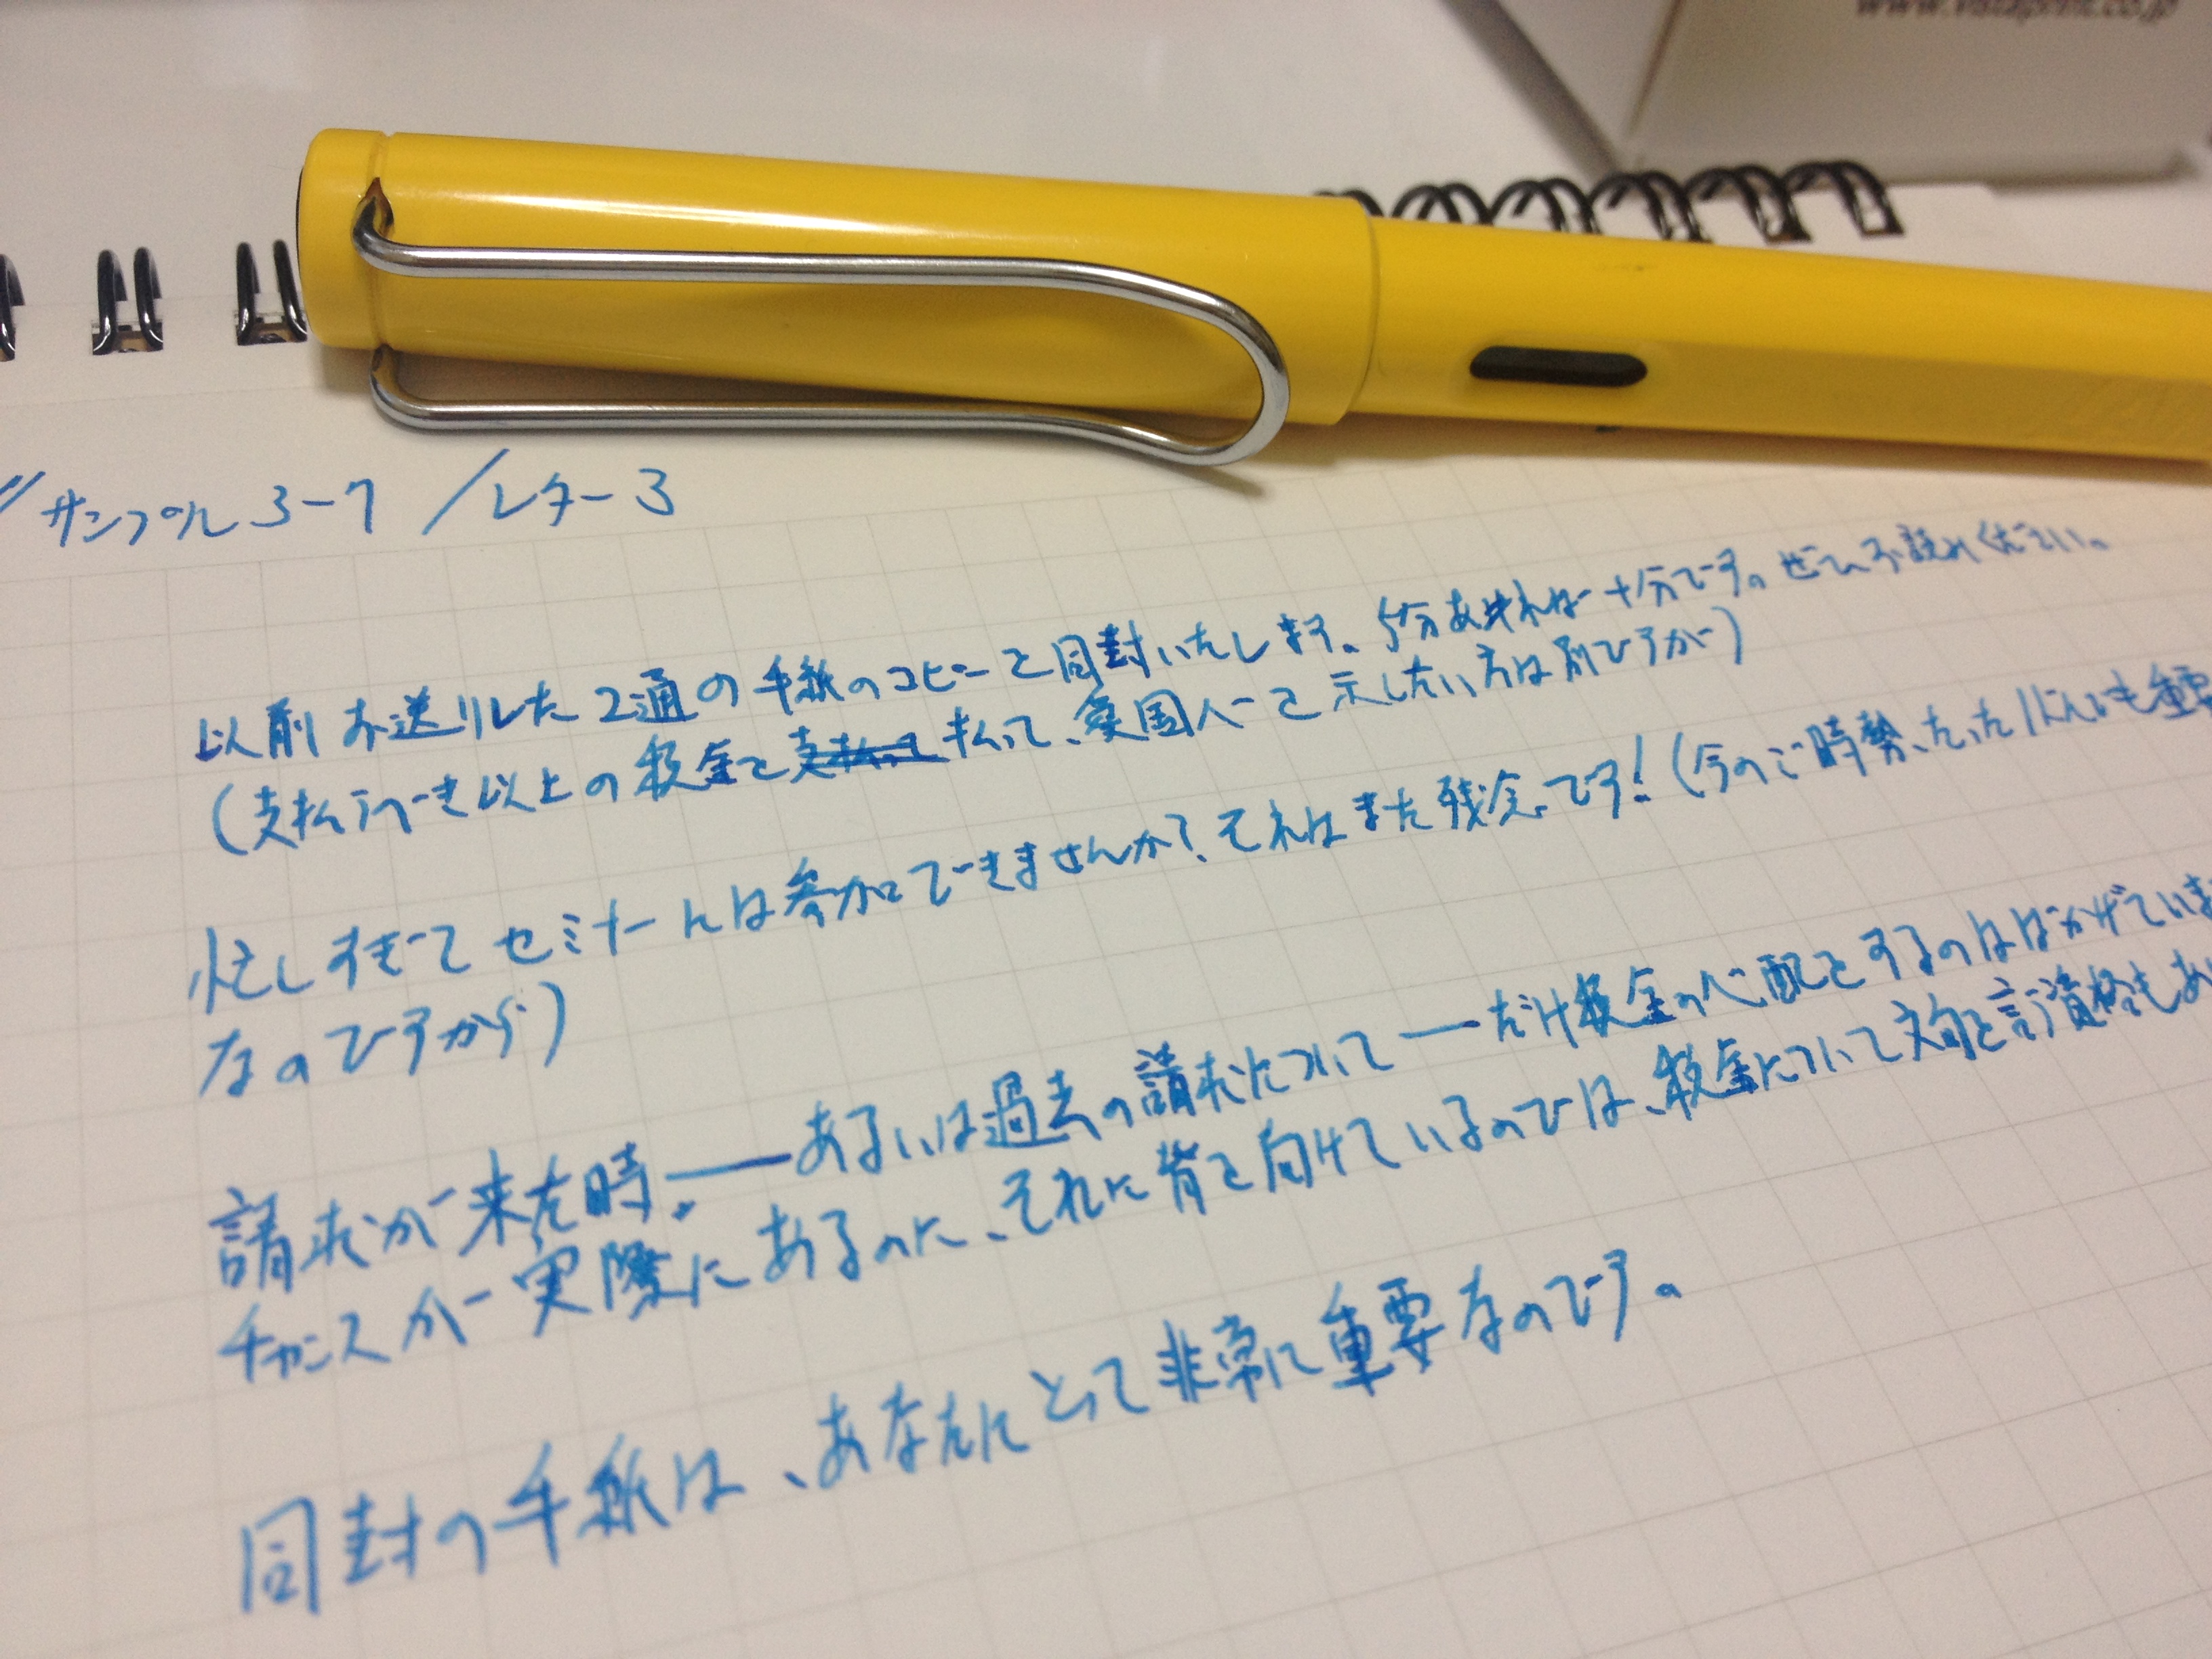 www.vistaprint.co.jp
//サンプル3-7 /レター3
以前お送りした2通の手紙のコピーを同封いたします。5分あれば十分です。ぜひお読みください。
(支払うべき以上の税金を支払って払って、愛国心を示したい方は別ですが)
忙しすぎてセミナーには参加できませんか?それはまた残念です!(今のご時勢、たった1ドルも重要
なのですから)
請求が来た時、——あるいは過去の請求について——だけ税金の心配をするのはばかげていま
チャンスが実際にあるのに、それに背を向けているのでは、税金について文句を言う資格もあ
同封の手紙は、あなたにとって非常に重要なのです。